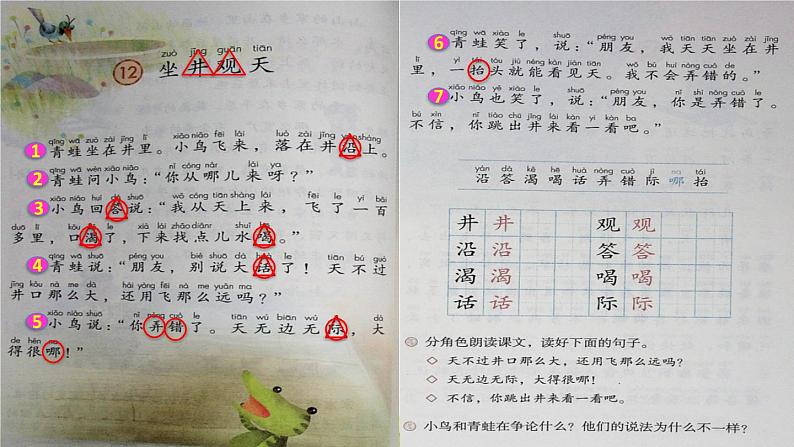 zuò jǐng guān tiān
12 坐井观天
qīng wā zuò zài jǐng lǐ xiǎo niǎo fēi lái luò zài jǐng yán shàng
1 青蛙坐在井里。小鸟飞来，落在井沿上。
qīng wā wèn xiǎo niǎo nǐ cóng nǎr lái ya
2 青蛙问小鸟：“你从哪儿来呀？”
xiǎo niǎo huí dá shuō wǒ cóng tiān shàng lái fēi le yì bǎi
3 小鸟回答说：“我从天上来，飞了一百
duō lǐ kǒu kě le xià lái zhǎo diǎnr shuǐ hē
多里，口渴了，下来找点儿水喝。”
qīng wā shuō péng you bié shuō dà huà le tiān bú guò
4 青蛙说：“朋友，别说大话了！天不过
jǐng kǒu nà me dà hái yòng fēi nà me yuǎn ma
井口那么大，还用飞那么远吗？”
xiǎo niǎo shuō nǐ nòng cuò le tiān wú biān wú jì dà
5 小鸟说：“你弄错了。天无边无际，大
de hěn na
得很哪！”
qīng wā xiào le shuō péng you wǒ tiān tiān zuò zài jǐng
6 青蛙笑了，说：“朋友，我天天坐在井
lǐ yì tái tóu jiù néng kàn jiàn tiān wǒ bú huì nòng cuò de
里，一抬头就能看见天。我不会弄错的。”
xiǎo niǎo yě xiào le shuō péng you nǐ shì nòng cuò le
7 小鸟也笑了，说：“朋友，你是弄错了。
bú xìn nǐ tiào chū jǐng lái kàn yí kàn ba
不信，你跳出井来看一看吧。”
yán dá kě hē huà nòng cuò jì na tái
沿 答 渴 喝 话 弄 错 际 哪 抬
井 井 观 观
沿 沿 答 答
渴 渴 喝 喝
话 话 际 际
分角色朗读课文，读好下面的句子。
◇ 天不过井口那么大，还用飞那么远吗？
◇ 天无边无际，大得很哪！
◇ 不信，你跳出井来看一看吧。
小鸟和青蛙在争论什么？他们的说法为什么不一样？